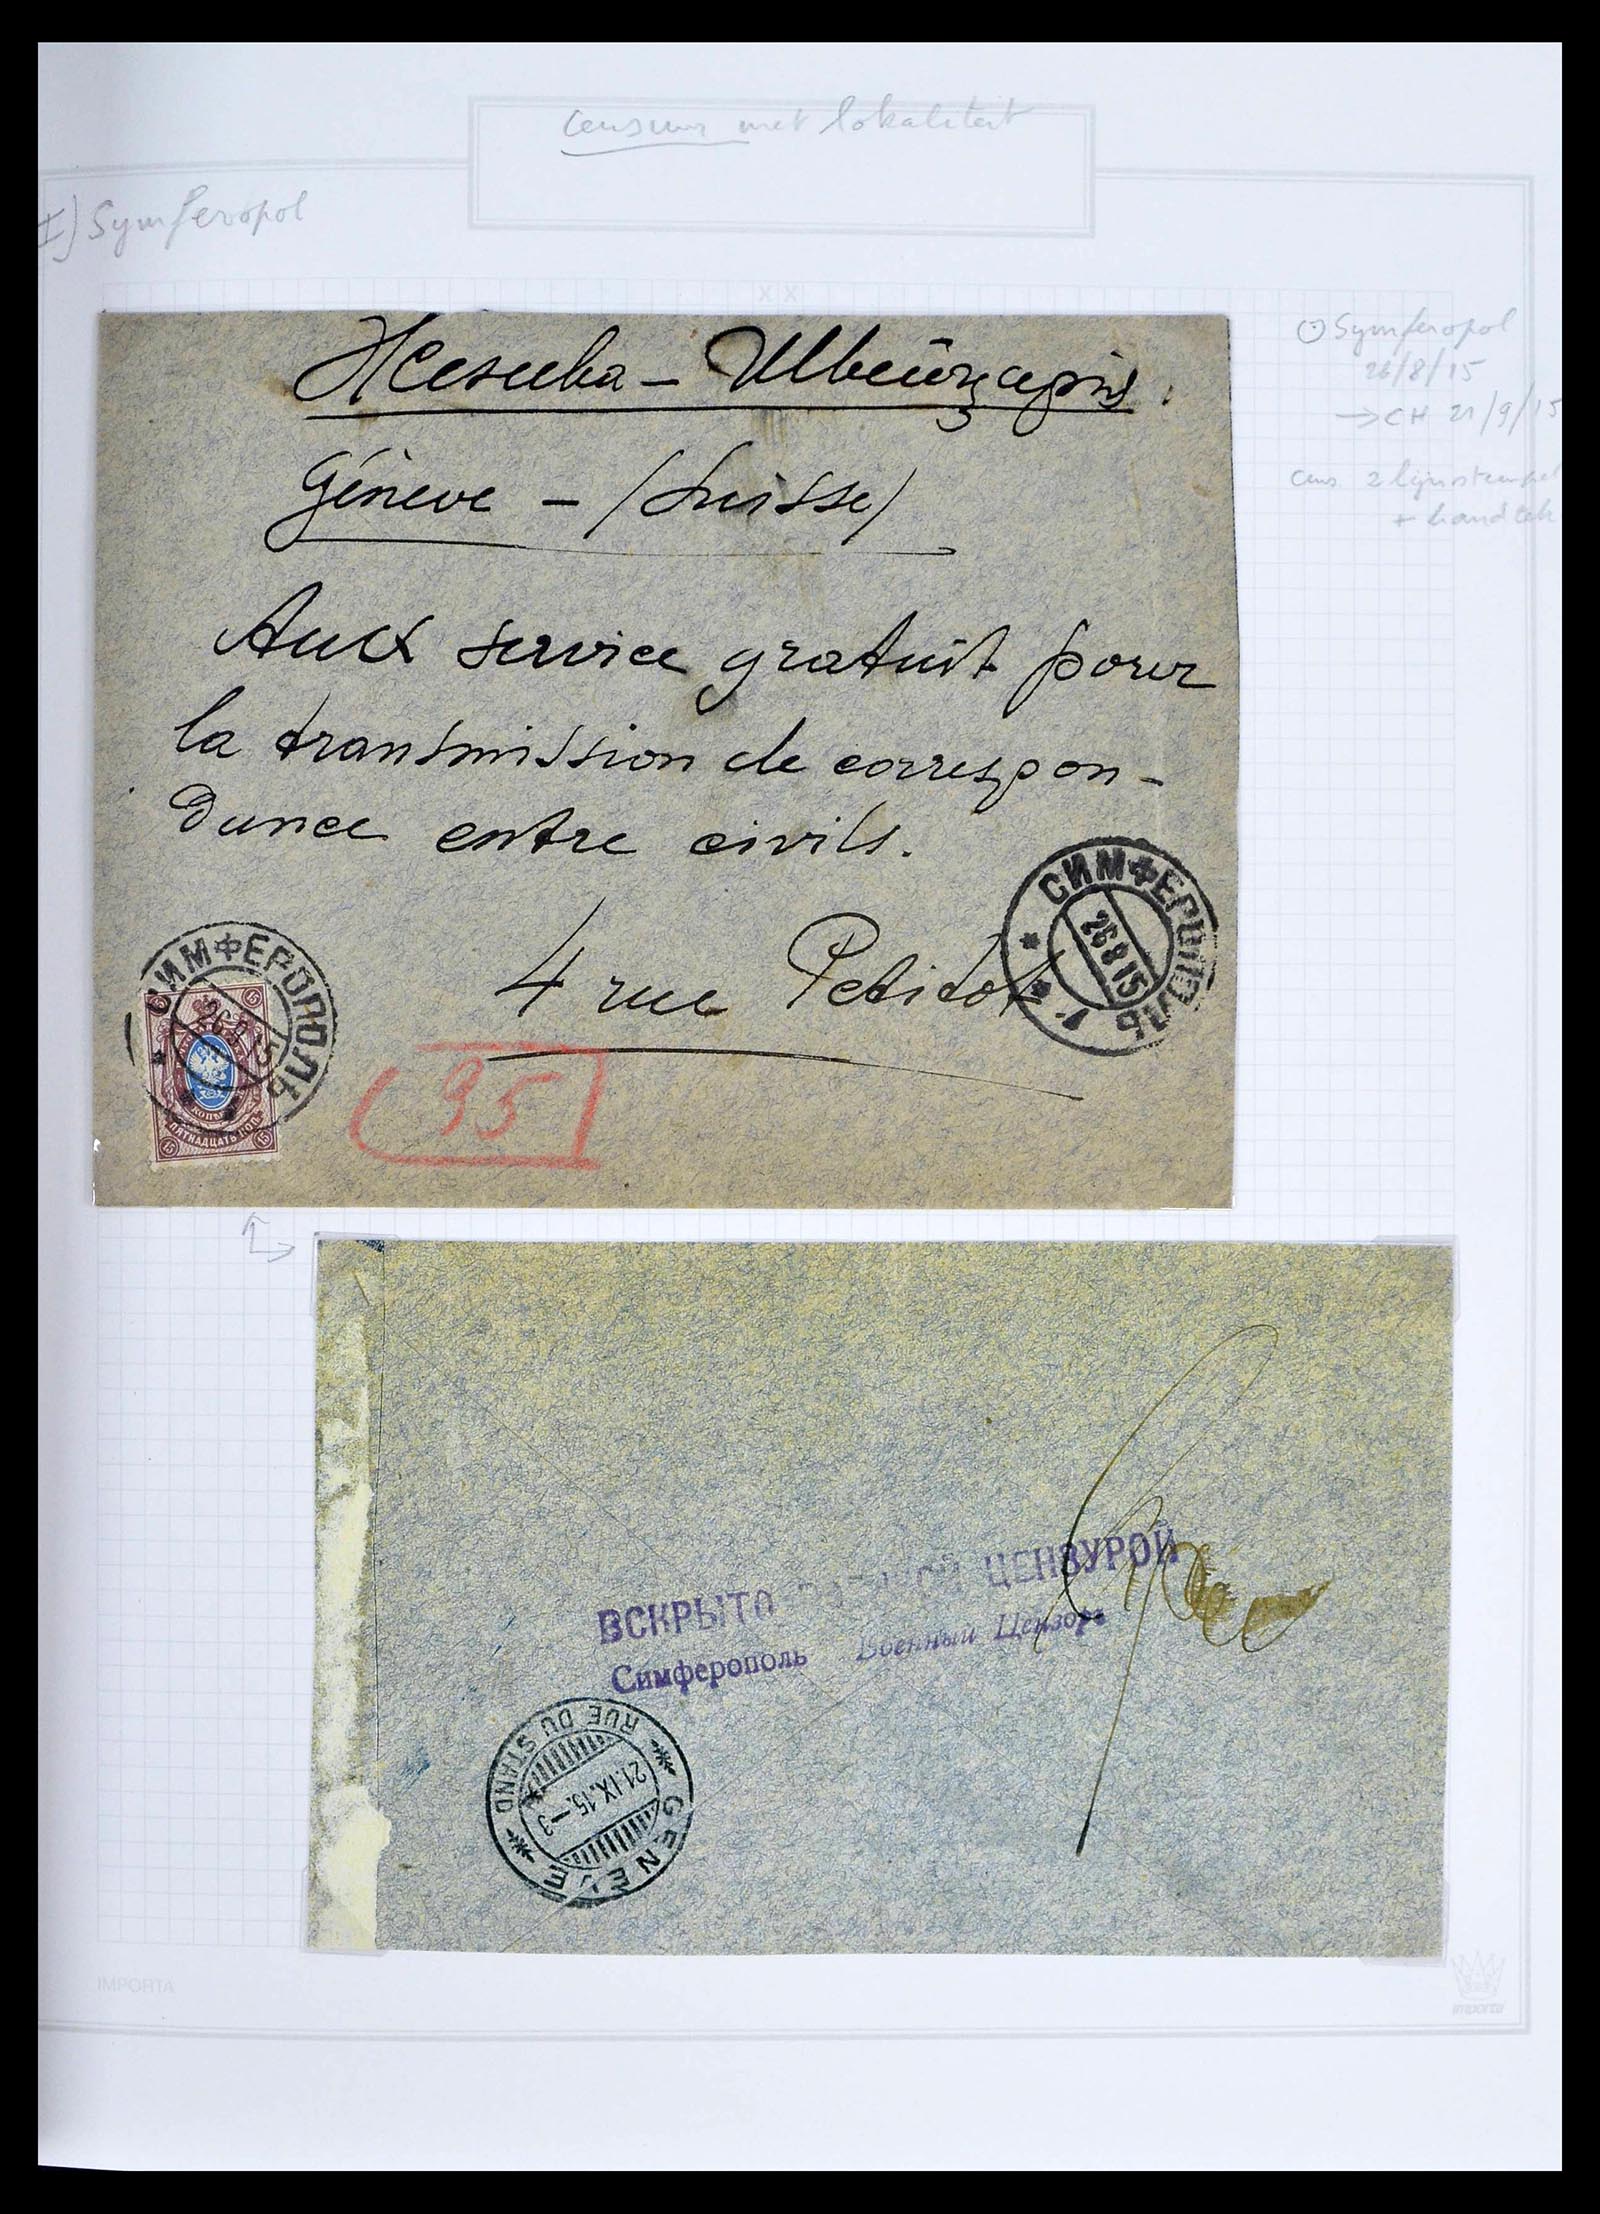 censuur met lokaliteit
I) Symferopol
x x
⊙ Symferopol
26/8/15
→ CH 21/9/15
cens 2 lijnstempel
+ handtek
Женева – Швейцарія.
Génève – (Suisse)
Aux service gratuit pour
la transmission de correspon-
dance entre civils.
4 rue Petitot
СИМФЕРОПОЛЬ
26 8 15
СИМФЕРОПОЛЬ
26 8 15
15 15
ПЯТНАДЦАТЬ КОП.
15 15
95
ВСКРЫТО ЦЕНЗУРОЙ
Симферополь Военный Цензоръ
RUE DU STAND
21.IX.15.–3
GENÈVE
IMPORTA
importa